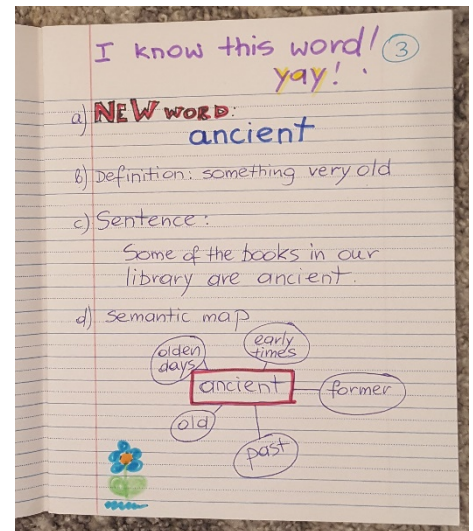 I know this word! 3
yay!
a) NEW WORD:
ancient
b) Definition: something very old
c) Sentence:
Some of the books in our
library are ancient.
d) semantic map
early
times
olden
days
ancient
former
old
past